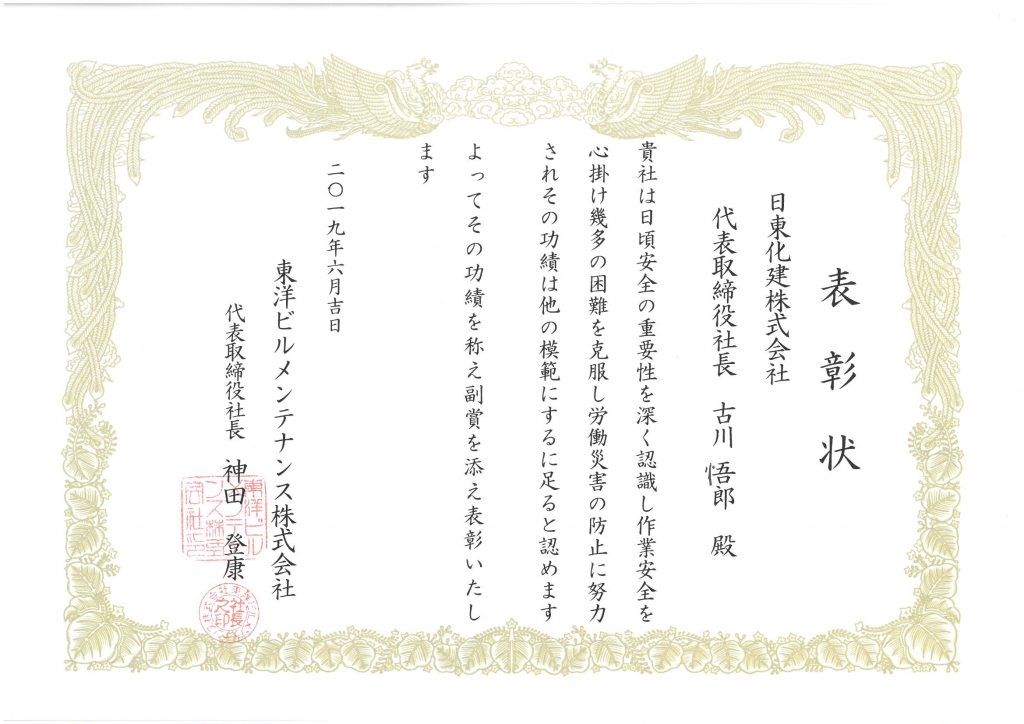 表彰状
日東化建株式会社
代表取締役社長 古川 悟郎 殿
貴社は日頃安全の重要性を深く認識し作業安全を
心掛け幾多の困難を克服し労働災害の防止に努力
されその功績は他の模範にするに足ると認めます
よってその功績を称え副賞を添え表彰いたし
ます
二〇一九年六月吉日
東洋ビルメンテナンス株式会社
代表取締役社長 神田 登康
社長
之印